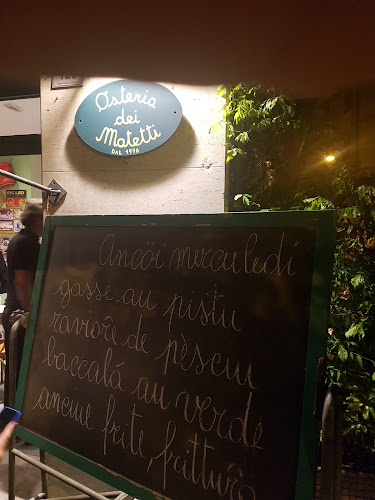 Osteria
dei
Matetti
DAL 1996
Ancöi mercüledì
gasse au pistu
raviöre de pèsciu
baccalà au verde
anciue frite, frittüra